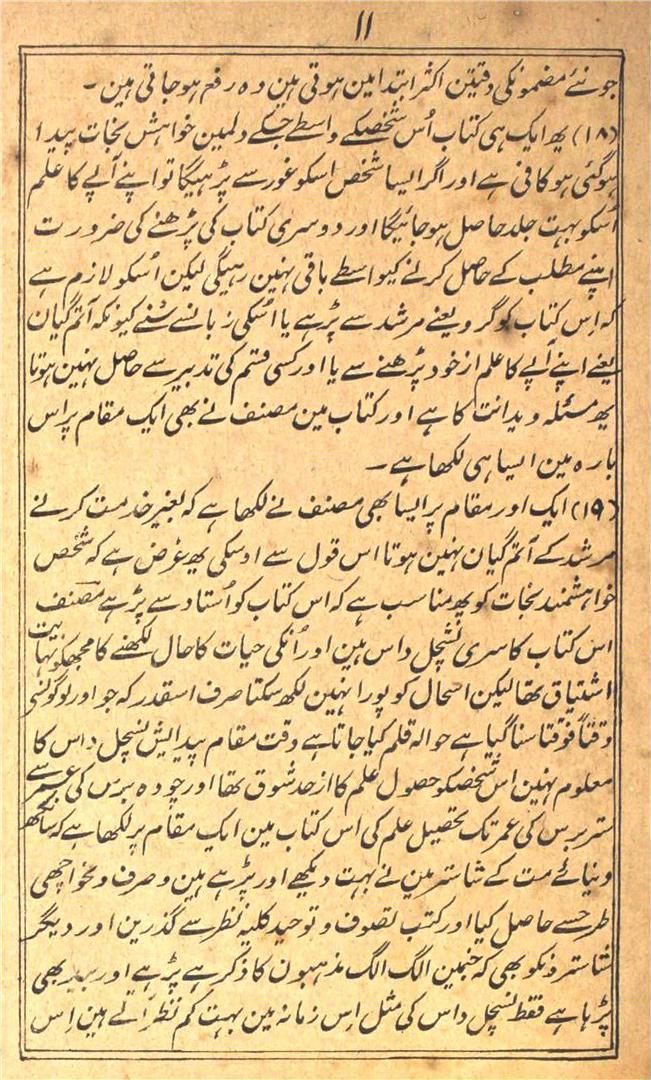 ۱۱
جو نئے مضمونکی دقیتن اکثر ابتدا مین ہوتی ہین وہ رفع ہو جاتی ہین ۔
(۱۸) یہ ایک ہی کتاب اُس شخصکے واسطے جسکے دلمین خواہش نجات پیدا
ہوگئی ہو کافی ہے اور اگر ایسا شخص اسکو غور سے پڑہیگا تو اپنے آپے کا علم
اُسکو بہت جلد حاصل ہو جائیگا اور دوسری کتاب کی پڑھنے کی ضرورت
اپنے مطلب کے حاصل کرنے کیواسطے باقی نہین رہیگی لیکن اُسکو لازم ہے
کہ اِس کتاب کو گرو یعنے مرشد سے پڑہے یا اُسکی زبانسے سُنے کیونکہ آتم گیان
یعنے اپنے آپے کا علم از خود پڑھنے سے یا اور کسی قسم کی تدبیر سے حاصل نہین ہوتا
یہ مسئلہ ویدانت کا ہے اور کتاب مین مصنف نے بھی ایک مقام پر اس
بارہ مین ایسا ہی لکھا ہے ۔
(۱۹) ایک اور مقام پر ایسا بھی مصنف نے لکھا ہے کہ بغیر خدمت کرنے
مرشد کے آتم گیان نہین ہوتا اس قول سے اوسکی یہ غرض ہے کہ شخص
خواہشمند نجات کو یہ مناسب ہے کہ اس کتاب کو اُستاد سے پڑہے مصنف
اس کتاب کا سری نسچل داس ہین اور اُنکی حیات کا حال لکھنے کا مجھکو نہایت
اشتیاق تھا لیکن اسحال کو پورا نہین لکھ سکتا صرف اسقدر کہ جو اور لوگونسے
وقتاً فوقتاً سنا گیا ہے حوالہ قلم کیا جاتا ہے وقت مقام پیدایش نسچل داس کا
معلوم نہین اس شخصکو حصول علم کا از حد شوق تھا اور چودہ برس کی عمر سے
ستر برس کی عمر تک تحصیل علم کی اس کتاب مین ایک مقام پر لکھا ہے کہ سانکھ
و نیائے مت کے شاستر مین نے بہت دیکھے اور پڑہے ہین و صرف و نحو اچھی
طرحسے حاصل کیا اور کتب تصوف و توحید کلیہ نظر سے گذرین اور دیگر
شاسترونکو بھی کہ جنمین الگ الگ مذہبون کا ذکر ہے پڑہے اور بید بھی
پڑہا ہے فقط نسچل داس کی مثل اِس زمانہ مین بہت کم نظر آتے ہین اِس